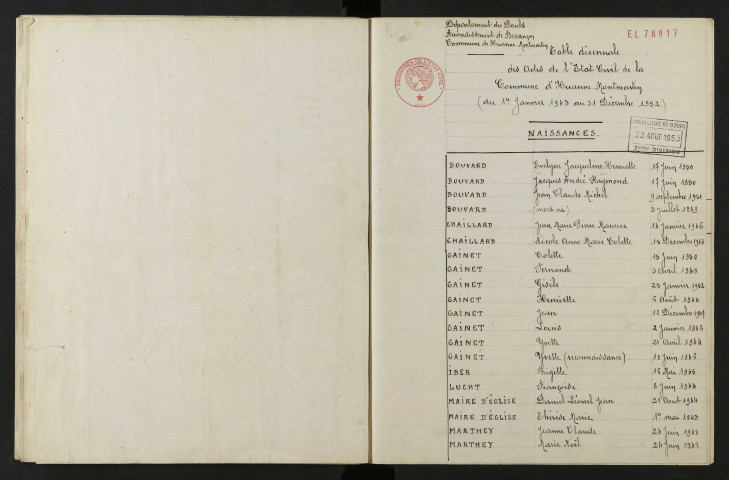 Département du Doubs
Arrondissement de Besançon
Commune de Huanne-Montmartin
EL 78917
Table décennale
des Actes de l'Etat Civil de la
Commune d'Huanne Montmartin
(du 1er Janvier 1943 au 31 Décembre 1952.)
PREFECTURE DU DOUBS
22 AOUT 1953
DIVISION
NAISSANCES.
BOUVARD Evelyne Jacqueline Henriette 17 Juin 1950
BOUVARD Jacques André Raymond 17 Juin 1950
BOUVARD Jean Claude Michel 9 septembre 1951
BOUVARD (mort né) 3 Juillet 1949
CHAILLARD Jean Marie Pierre Maurice 14 Janvier 1946
CHAILLARD Nicole Anne Marie Colette Décembre
GAINET Colette 15 Juin 1950
GAINET Fernand 3 Avril 1949
GAINET Gisèle 29 Janvier 1952
GAINET Henriette 6 Août 1944
GAINET Jean 15 Décembre
GAINET Louis 2 Janvier 1946
GAINET Yvette 21 Avril 1944
GAINET Yvette (reconnaissance) Juin 1946
IBER Brigitte 16 Mai
LUCHT Françoise 6 Juin 1944
MAIRE D'ÉGLISE Daniel Léonel Jean 21 Août 1944
MAIRE D'ÉGLISE Thérèse Marie 1er mai 1943
MARTHEY Jeanne Claude 24 Juin 1948
MARTHEY Marie Noël 24 Juin 1948